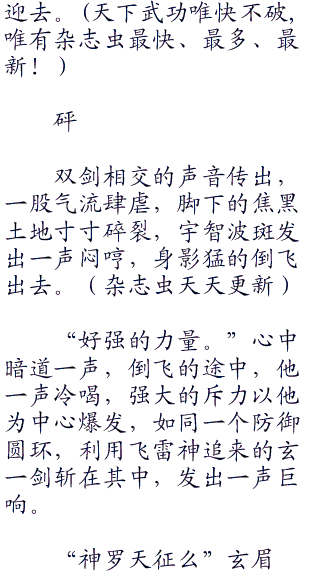 迎去。(天下武功唯快不破,
唯有杂志虫最快、最多、最
新！)
砰
双剑相交的声音传出，
一股气流肆虐，脚下的焦黑
土地寸寸碎裂，宇智波斑发
出一声闷哼，身影猛的倒飞
出去。（杂志虫天天更新）
“好强的力量。”心中
暗道一声，倒飞的途中，他
一声冷喝，强大的斥力以他
为中心爆发，如同一个防御
圆环，利用飞雷神追来的玄
一剑斩在其中，发出一声巨
响。
“神罗天征么”玄眉